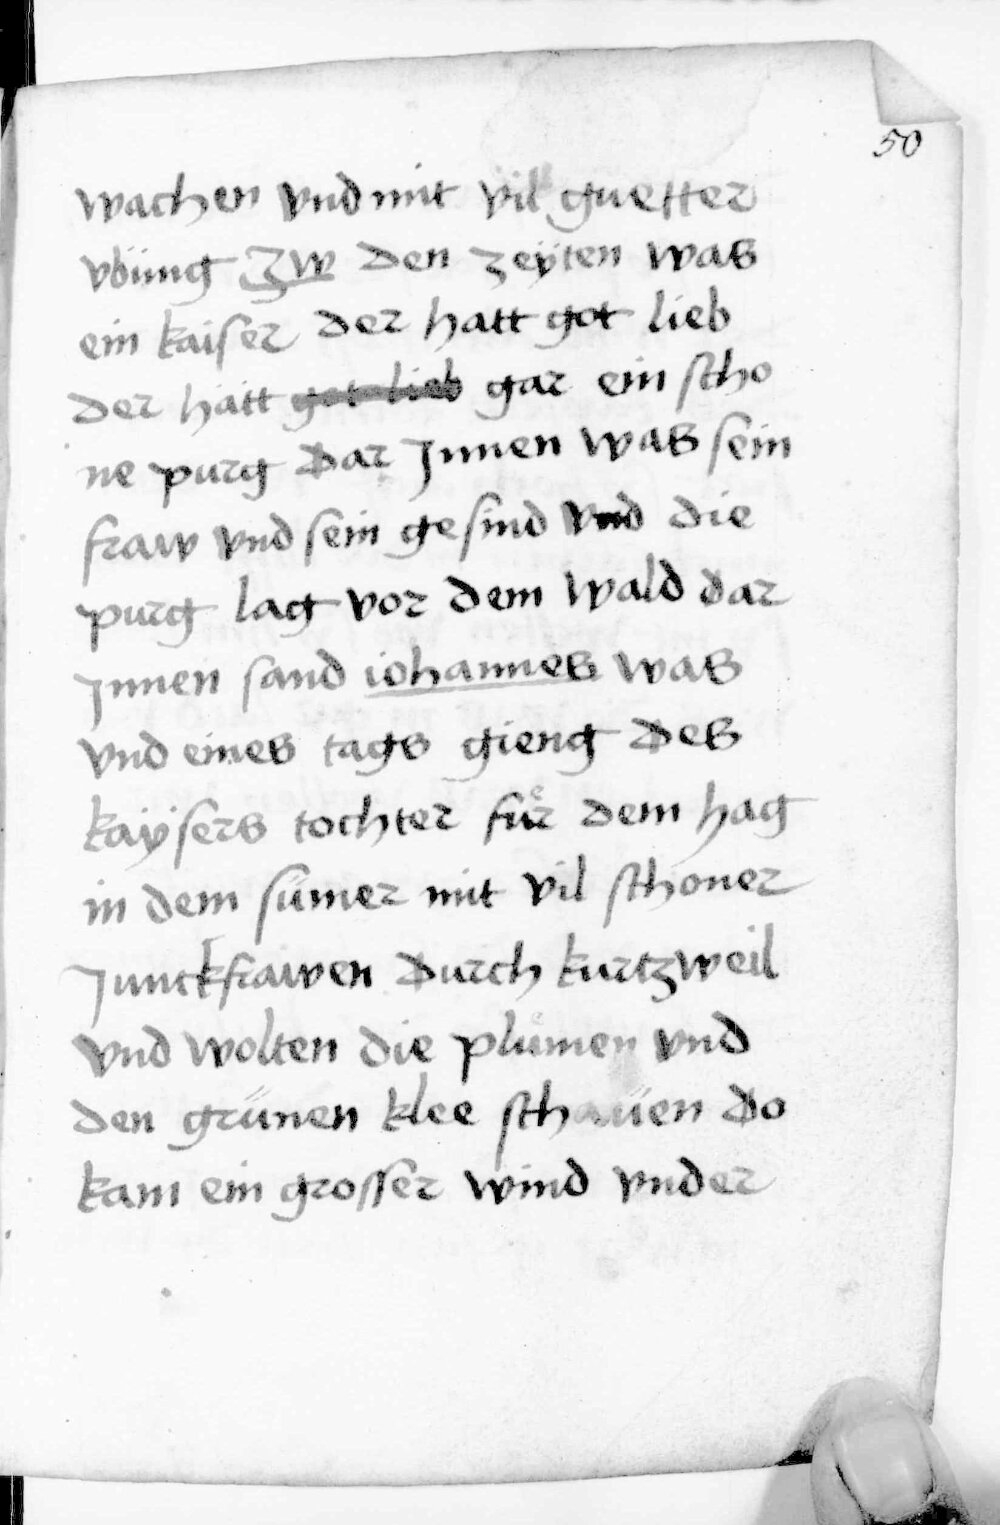 50
wachen vnd mit vil guetter
vbung Zw den zeÿten was
ein kaiser der hatt got lieb
der hatt got lieb gar ein scho
ne purg dar Jnnen was sein
fraw vnd sein gesind vnd die
purg lag vor dem wald dar
Jnnen sand iohannes was
vnd eines tags gieng des
kaÿsers tochter fuͤr dem hag
in dem sümer mit vil schoner
Junckfrawen durch kurtzweil
vnd wolten die pluͤmen vnd
den grünen klee schaüen do
kam ein grosser wind vnder